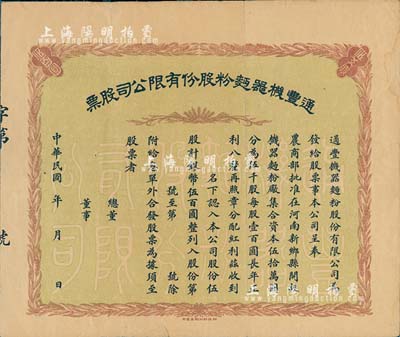 上海陽明拍賣
www.yangmingauction.com
通豐機器麵粉股份有限公司股票
通豐機器麵粉股份有限公司為
發給股票事本公司呈奉
農商部批准在河南新鄉縣開設
機器麵粉廠集合資本伍拾萬圓
分為伍千股每股壹百圓長年官
利八釐再照章分配紅利茲收到
名下認入本公司股份伍
股計銀幣伍百圓整列入股份第
號至第 號除
附給息單外合發股票為據須至
股票者
總董
董事
中華民國 年 月 日
字第 號